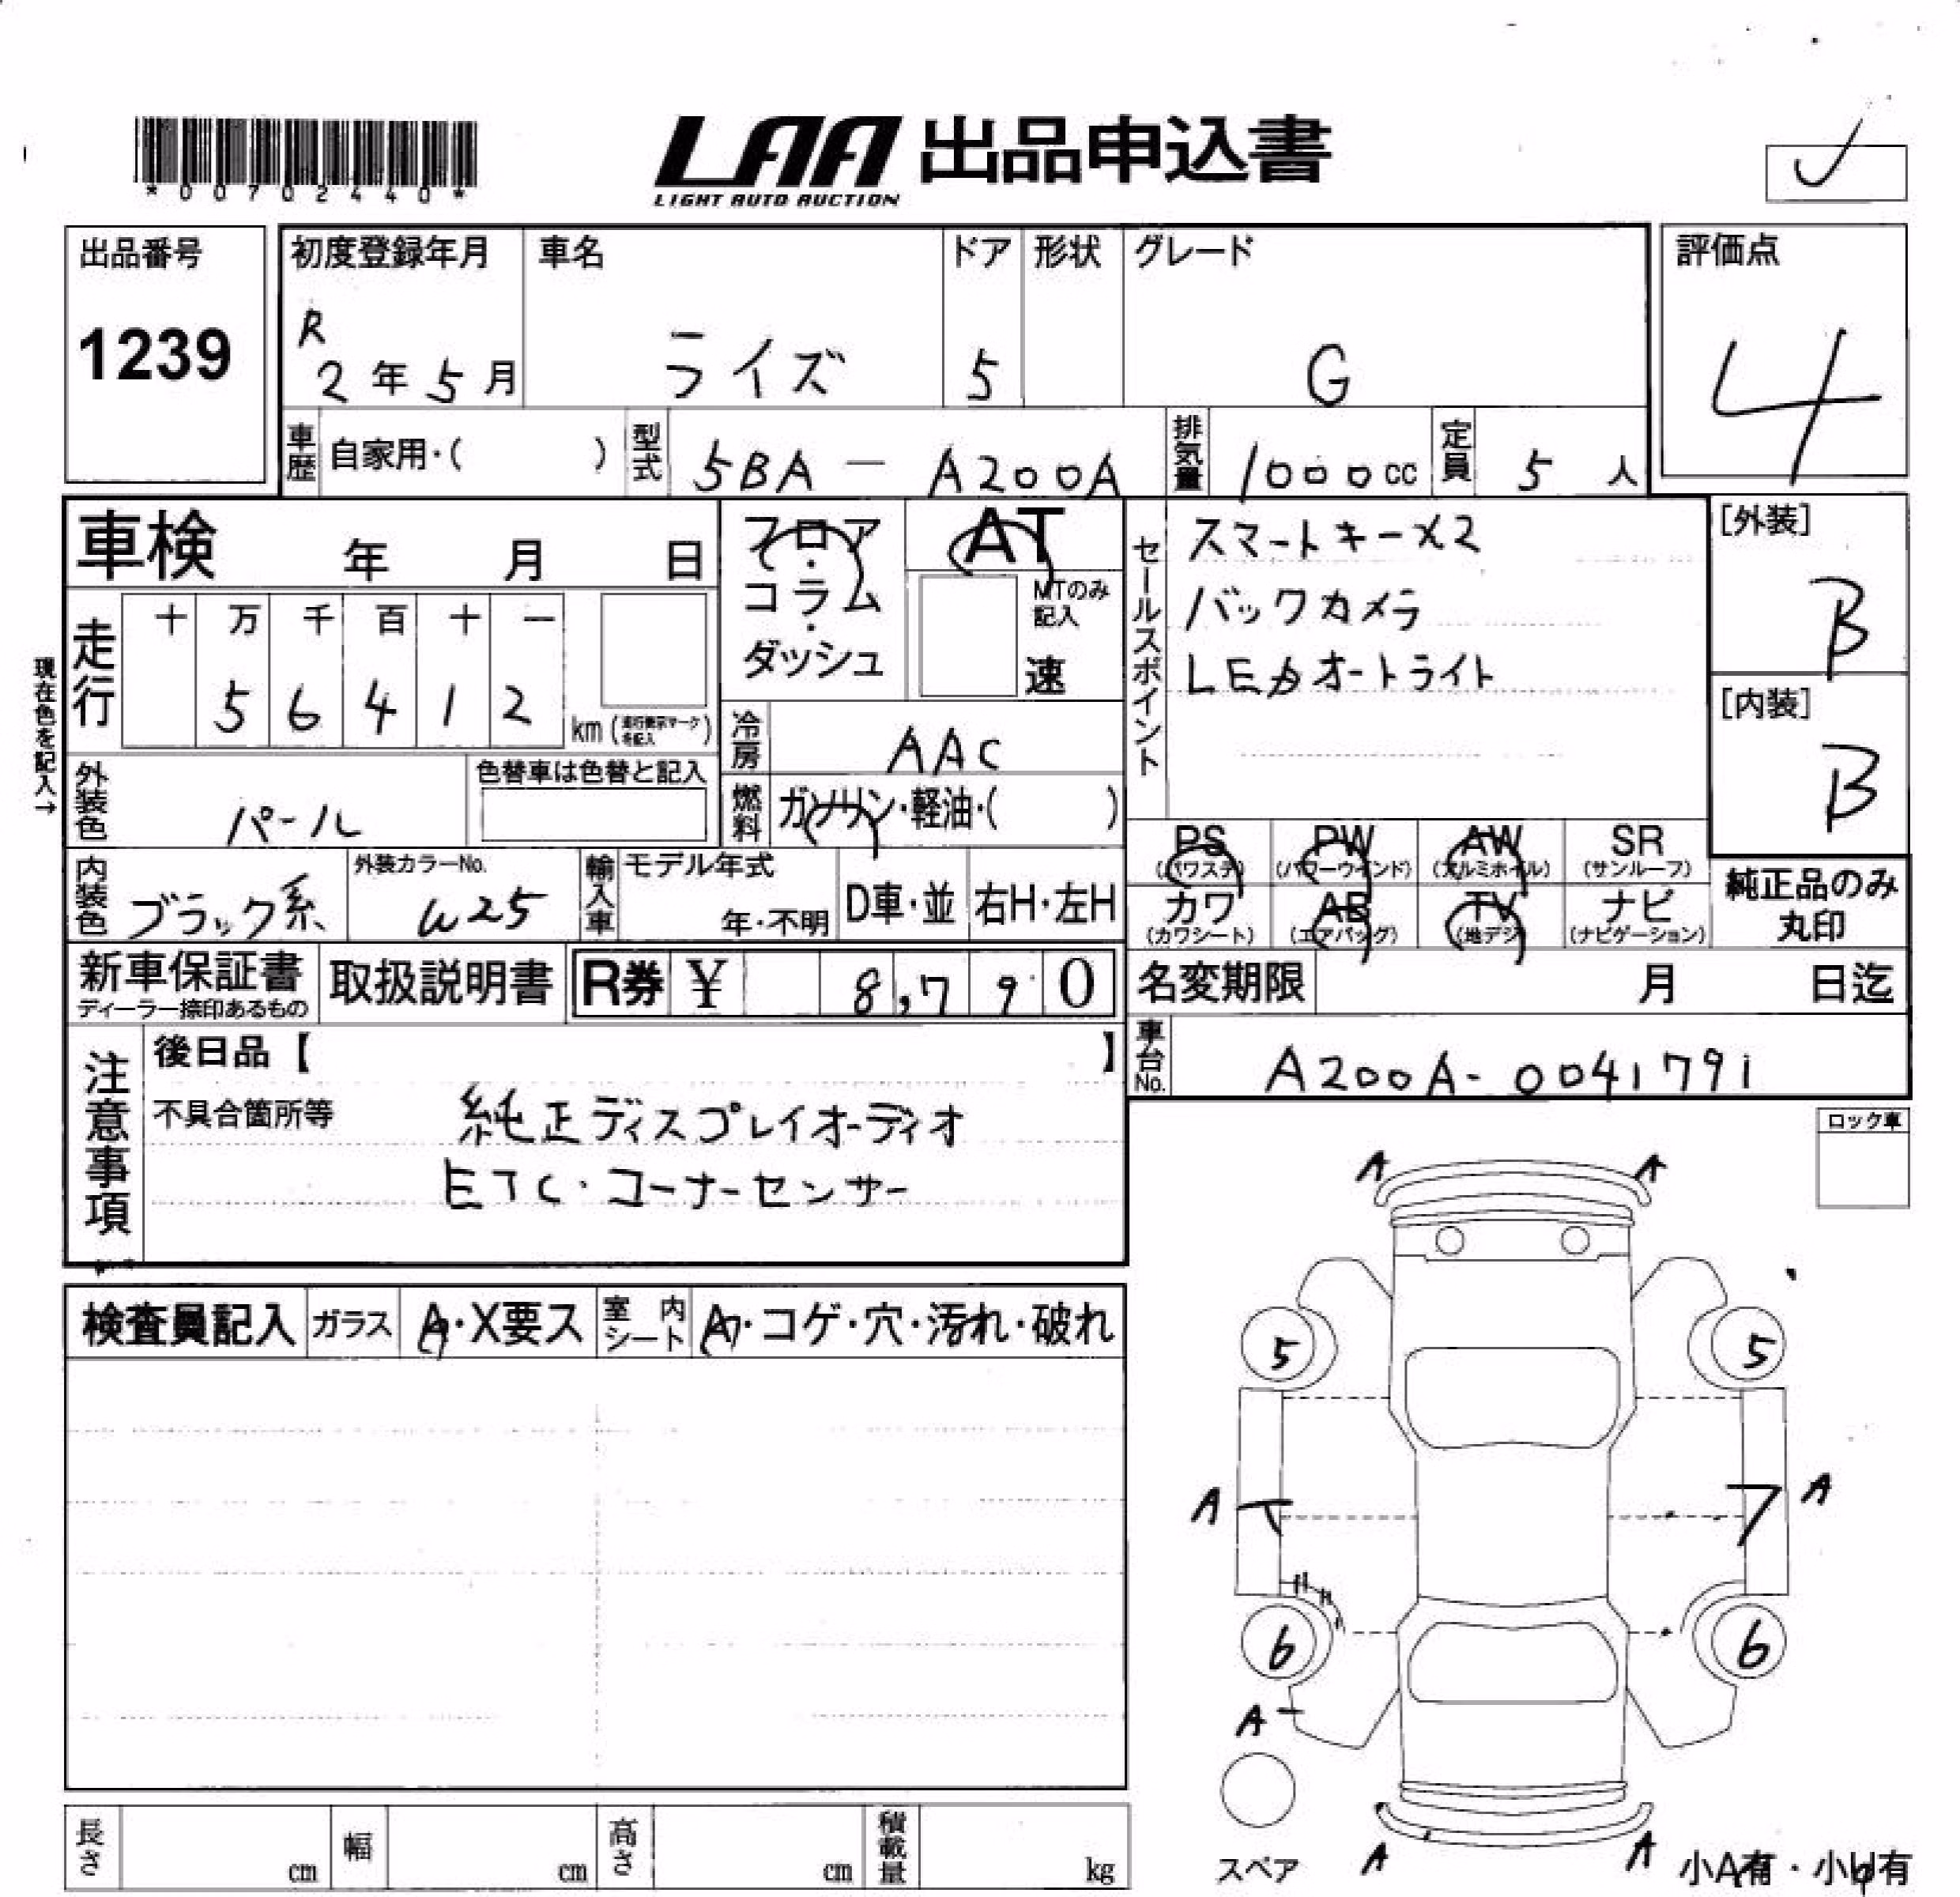 *00702440*
LAA 出品申込書
LIGHT AUTO AUCTION
出品番号
1239
初度登録年月
R
2年5月
車名
ライズ
ドア
5
形状
グレード
G
評価点
4
車歴 自家用・( )
型式 5BA - A200A
排気量 1000cc
定員 5人
車検 年 月 日
現在色を記入→
走行
十 万 千 百 十 一
5 6 4 1 2
km
外装色 パール
色替車は色替と記入
内装色 ブラック系
外装カラーNo.
W25
輸入車
モデル年式
年・不明
D車・並
右H・左H
フロア・
コラム・
ダッシュ
AT
MTのみ
記入
速
冷房 AAC
燃料 ガソリン・軽油・( )
セールスポイント
スマートキーX2
バックカメラ
LEDオートライト
[外装]
B
[内装]
B
PS
(パワステ)
PW
(パワーウインド)
AW
(アルミホイル)
SR
(サンルーフ)
カワ
(カワシート)
AB
(エアバッグ)
TV
(地デジ)
ナビ
(ナビゲーション)
純正品のみ
丸印
新車保証書
ディーラー捺印あるもの
取扱説明書
R券 ¥ 8,790
名変期限 月 日迄
車台No. A200A-0041791
注意事項
後日品【 】
不具合箇所等
純正ディスプレイオーディオ
ETC・コーナーセンサー
ロック車
検査員記入
ガラス A・X要ス
室内
シート
A・コゲ・穴・汚れ・破れ
A A
5 5
A A
6 6
A
スペア
A A
小A有・小U有
長さ cm
幅 cm
高さ cm
積載量 kg